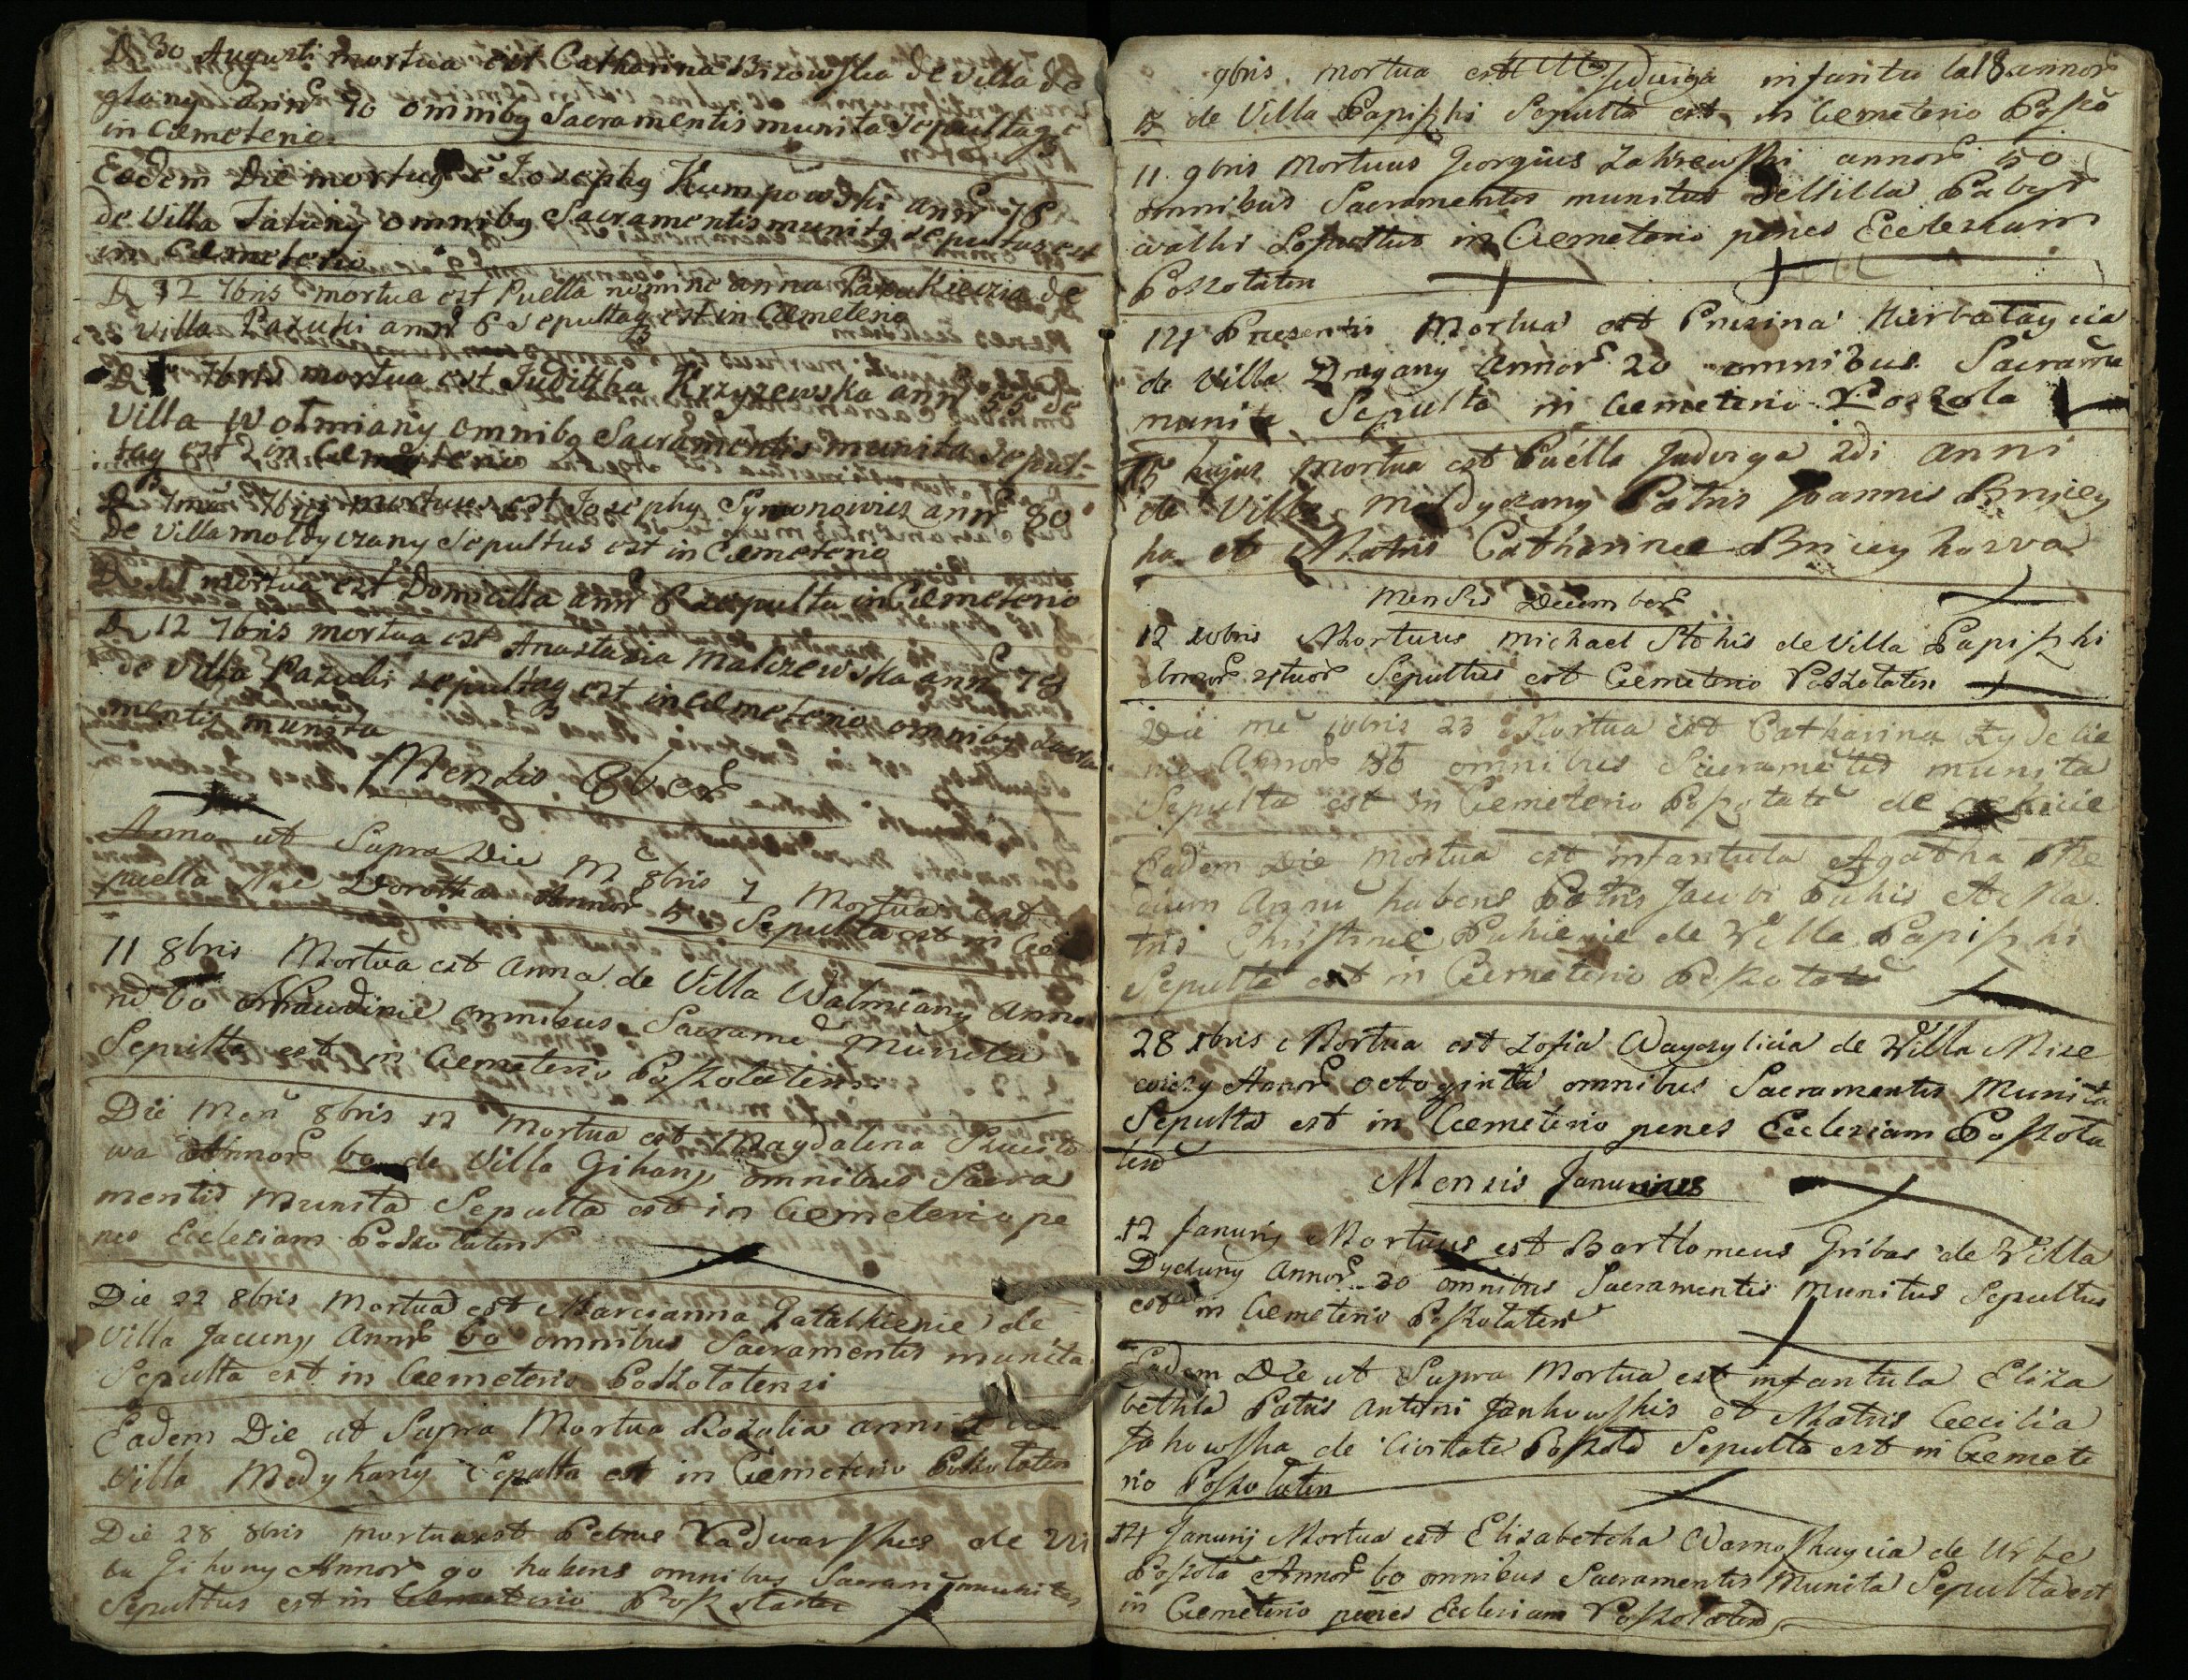 D 30 Augusti mortua est Catharina Bizowska de villa de
glany ann 70 omnibq Sacramentis munita sepultaq e
in Cæmeterio
Eadem Die mortuq e Josephq Kumpowski ann 78
de Villa Jatuny omnibq Sacramentis munitq sepultus est
in Cæmeterio
D 12 7bris mortua est Puella nomine anna de
villa Pazuki ann 6 sepultaq est in Cæmeterio
D 7bris mortua est Juditha Krzyzewska ann 55 de
Villa Wolmiany omnibq Sacramentis munita sepul-
taq est in Cæmeterio
D 7bris mortuus est Josephq Symonowicz ann 80
de Villa moldyczany Sepultus est in Cæmeterio
mortua est Domicilla ann 6 sepulta in Cæmeterio
D 12 7bris mortua est Anastasia Malczewska ann 70
de Villa Pazuki sepultaq est in Cæmeterio omnibq Sacra
mentis munita
Mensis 8br
Anno ut Supra Die M 8bris 7 Mortua est
puella Dorothea Annor 5 Sepulta est in Cæ
11 8bris Mortua est Anna de Villa Walmiany Anno
60 omnibus Sacrame Munita
Sepulta est in Cæmeterio Poszolaten
Die Men 8bris 12 Mortua est Magdalena
wa Annor 60 de Villa Gikany omnibus Sacra
mentis Munita Sepulta est in Cæmeterio pe
nes Ecclesiam Poszolatens
Die 22 8bris Mortua est Marcianna de
Villa Jacuny Annor 60 omnibus Sacramentis munita
Sepulta est in Cæmeterio Poszolatensi
Eadem Die ut Supra Mortua Rozalia anni
Villa Medykany Sepulta est in Cæmeterio Poszolaten
Die 28 8bris mortuus est Petrus Padwarskis de Vi
la Gikony Annor 90 habens omnibus Sacram munitus
Sepultus est in Cæmeterio Poszolaten
9bris mortua est Jadviga infantula 8 annor
13 de Villa Papiszki Sepulta est in Cæmeterio Poszo
11 9bris Mortuus Georgius Zakrewski annor 50
omnibus Sacramentis munitus de Villa Pabyr
walki Sepultus in Cæmeterio penes Ecclesiam
Poszolaten
124 Presentis Mortua est Prusina Kierbotaycia
de Villa Dragany Annor 20 omnibus Sacrame
munita Sepulta in Cæmeterio Poszola
15 hujus Mortua est Puella Jadviga 2di anni
de Villa Moldyczany Patris Joannis Briey
ka et Matris Catharinæ Brieykowa
Mensis Decembr
12 10bris Mortuus Michael Stokis de Villa Papiszki
Annor 4tuor Sepultus est Cæmeterio Poszolaten
Die me 10bris 23 Mortua est Catharina Zydelie
nie Annor 36 omnibus Sacrametis munita
Sepulta est in Cæmeterio Poszolate de
Eadem Die Mortua est infantula Agatha
dium Annu habens Patris Jacobi Pukis et Ma
tris Christinæ Pukienie de Villa Papiszki
Sepulta est in Cæmeterio Poszolate
28 Xbris Mortua est Zofia Wayczylicia de Villa Mice
wiczy Annor octoginta omnibus Sacramentis Munita
Sepulta est in Cæmeterio penes Ecclesiam Poszola
tens
Mensis Januarius
12 Janurij Mortuus est Bartlomeus Gribas de Villa
Dyckuny Annor 30 omnibus Sacramentis Munitus Sepultus
est in Cæmeterio Poszolatens
Eadem Die ut Supra Mortua est infantula Eliza
bethta Patris Antoni Jankowskis et Matris Cecilia
Jakowska de Civitate Poszola Sepulta est in Cæmete
rio Poszolaten
14 Januarij Mortua est Elisabetcha Warnoskaycia de Urbe
Poszola Annor 60 omnibus Sacramentis Munita Sepulta est
in Cæmeterio penes Ecclesiam Poszolatens